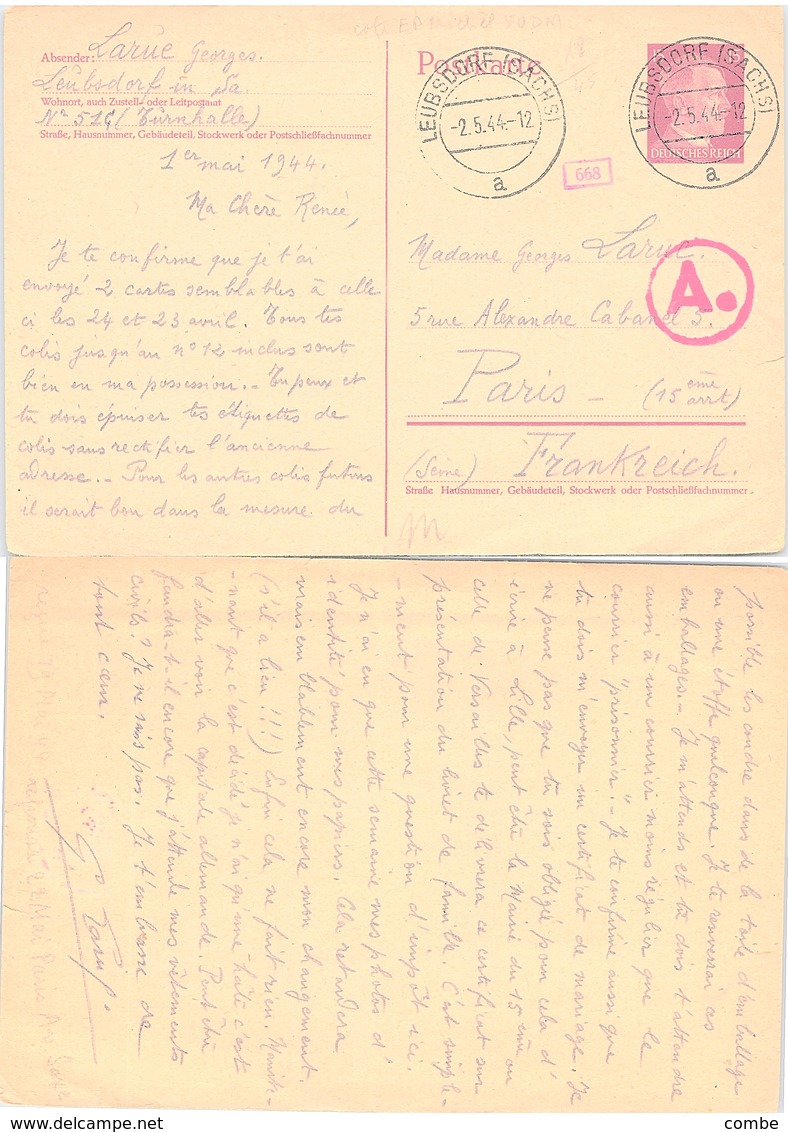 Postkarte
Absender: Larue Georges.
Leubsdorf in Sa.
Wohnort, auch Zustell- oder Leitpostamt
N° 51G (Turnhalle)
Straße, Hausnummer, Gebäudeteil, Stockwerk oder Postschließfachnummer
1er mai 1944.
Ma Chère Renée,
Je te confirme que je t'ai
envoyé 2 cartes semblables à celle
ci les 24 et 23 avril. Tous tes
colis jusqu'au n° 12 inclus sont
bien en ma possession. - Tu peux et
tu dois épuiser tes étiquettes de
colis sans rectifier l'ancienne
adresse. - Pour les autres colis futurs
il serait bon dans la mesure du
LEUBSDORF (SACHS)
-2.5.44.-12
a
LEUBSDORF (SACHS)
-2.5.44.-12
a
DEUTSCHES REICH
668
A.
Madame Georges Larue.
5 rue Alexandre Cabanel 5.
Paris - (15 ème
arrt)
(Seine) Frankreich.
Straße Hausnummer, Gebäudeteil, Stockwerk oder Postschließfachnummer
possible les coudre dans de la toile d'emballage
ou une étoffe quelconque. Je te renverrai ces
emballages. - Je m'attends et tu dois t'attendre
aussi à un courrier moins régulier que le
courrier "prisonnier". - Je te confirme aussi que
tu dois m'envoyer un certificat de mariage. Je
ne pense pas que tu sois obligé pour cela d'
écrire à Lille, peut être la Mairie du 15 ème ou
celle de Versailles te délivrera ce certificat sur
présentation du livret de famille. C'est simple-
-ment pour une question d'impôt ici.
Je n'ai eu que cette semaine mes photos d'
identité pour mes papiers. Cela retardera
vraisemblablement encore mon changement.
(s'il a lieu !!!) Enfin cela ne fait rien. Mainte-
-nant que c'est décidé je n'ai qu'une hâte c'est
d'aller voir la capitale allemande. Peut être
faudra-t-il encore que j'attende mes vêtements
civils ? Je ne sais pas. Je t'embrasse de
tout cœur.
G Larue
répondu 22 Mai Paris
combe